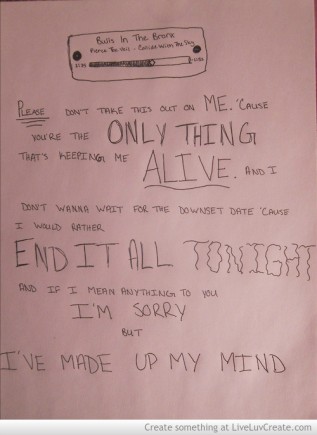 Bulls In The Bronx
Pierce The Veil - Collide With The Sky
PLEASE DON'T TAKE THIS OUT ON ME. 'CAUSE
YOU'RE THE ONLY THING
THAT'S KEEPING ME ALIVE. AND I
DON'T WANNA WAIT FOR THE DOWNSET DATE 'CAUSE
I WOULD RATHER
END IT ALL TONIGHT
AND IF I MEAN ANYTHING TO YOU
I'M SORRY
BUT
I'VE MADE UP MY MIND
Create something at LiveLuvCreate.com